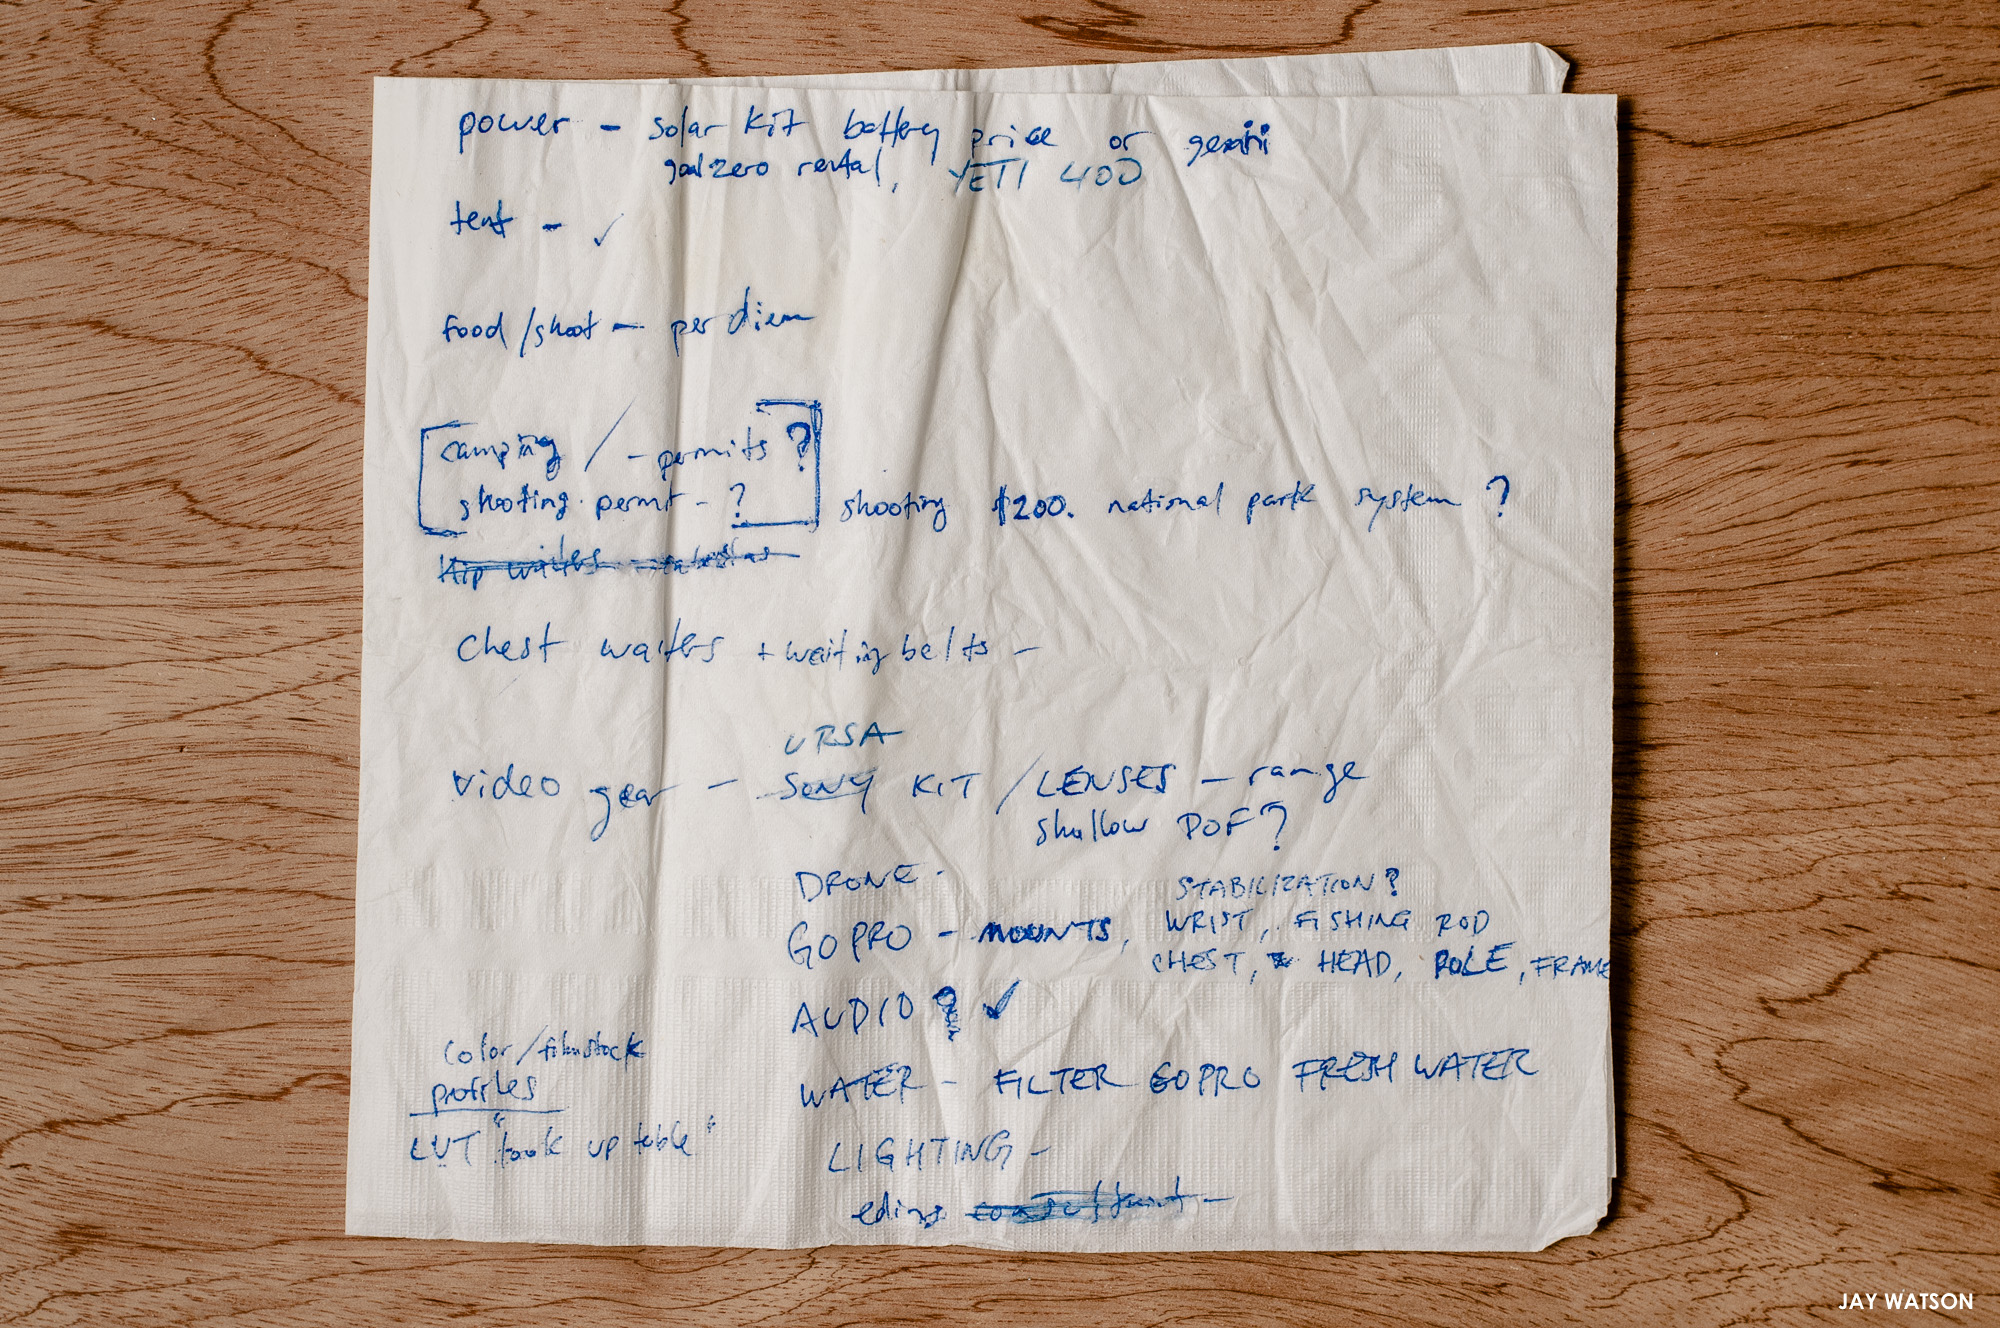 power - solar kit battery price or
goalzero rental, YETI 400
tent - ✓
food/shoot - per diem
camping / - permits ?
shooting permit - ? shooting $200. national park system ?
Hip waiters
chest waiters + waiting belts -
URSA
video gear - SONY KIT / LENSES - range
shallow DOF?
DRONE -
STABILIZATION?
GOPRO - MOUNTS, WRIST, FISHING ROD
CHEST, HEAD, POLE, FRAME
AUDIO ? ✓
color/filmstock
profiles
WATER - FILTER GOPRO FRESH WATER
LUT "look up table"
LIGHTING -
consultant -
JAY WATSON